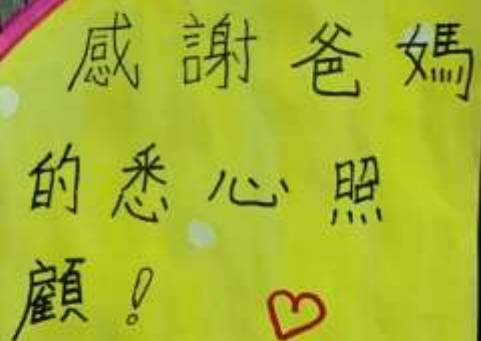 感謝爸媽
的悉心照
顧！